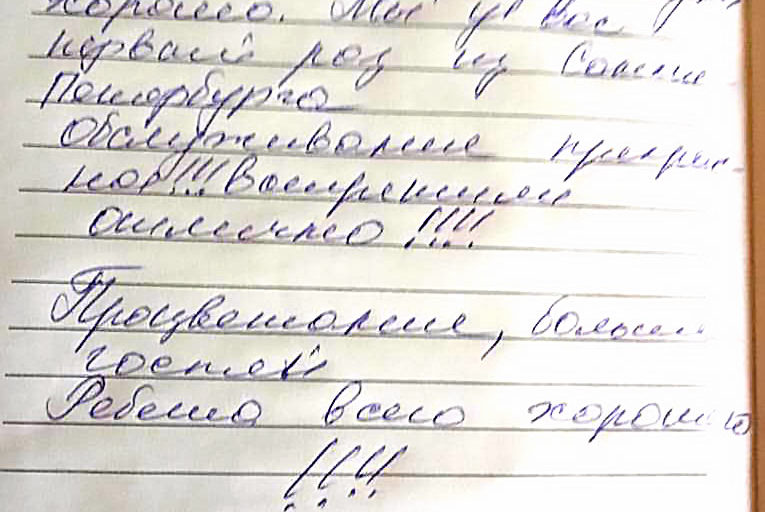 хорошо. Мы у вас
первый раз из Санкт-
Петербурга
Обслуживание прекрас-
ное!!! Встретили
отлично!!!!
Процветание, больше
гостей
Ребята всего хорошего
!!!!